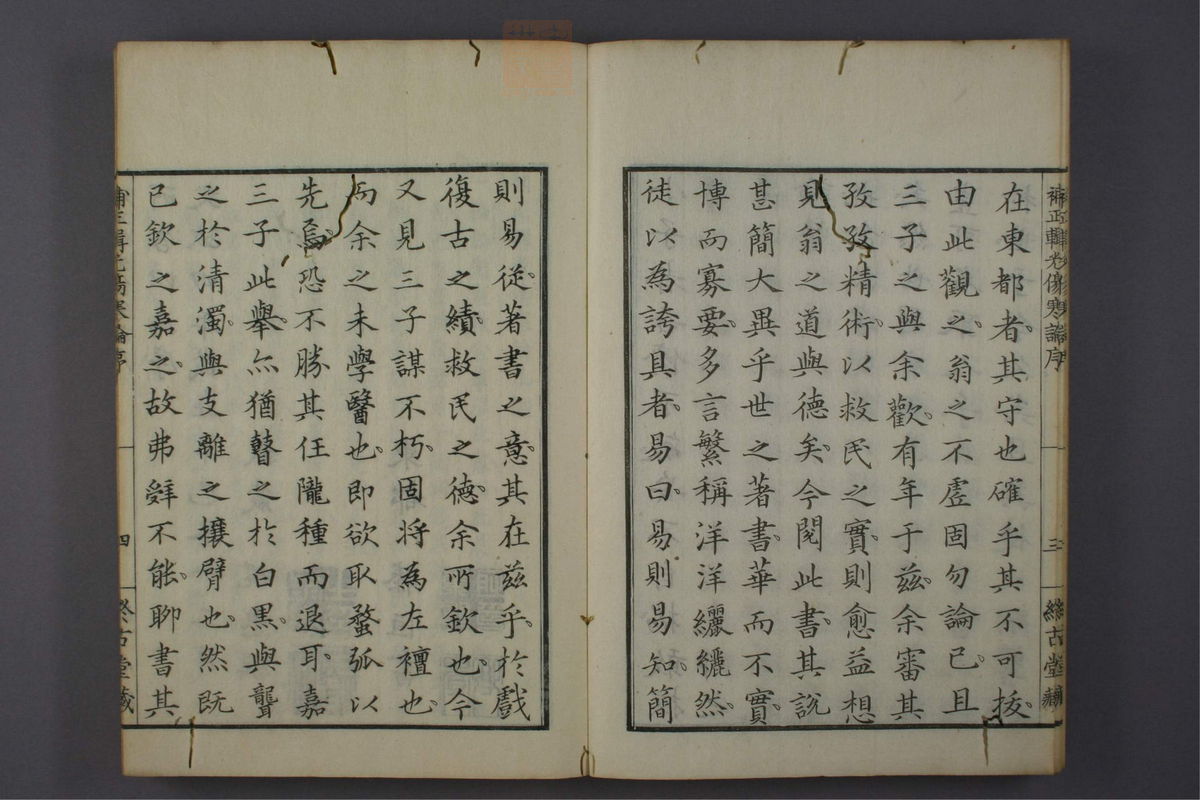 補正輯光傷寒論序
三
終古堂藏
在東都者其守也確乎其不可拔
由此觀之翁之不虛固勿論已且
三子之與余歡有年于茲余審其
孜孜精術以救民之實則愈益想
見翁之道與德矣今閱此書其說
甚簡大異乎世之著書華而不實
博而寡要多言繁稱洋洋纚纚然
徒以為誇具者易曰易則易知簡
則易從著書之意其在茲乎於戲
復古之績救民之德余所欽也今
又見三子謀不朽固將為左襢也
而余之未學醫也即欲取蝥弧以
先焉恐不勝其任隴種而退耳嘉
三子此舉亦猶瞽之於白黑與聾
之於清濁與支離之攘臂也然既
已欽之嘉之故弗辤不能聊書其
四
終古堂藏